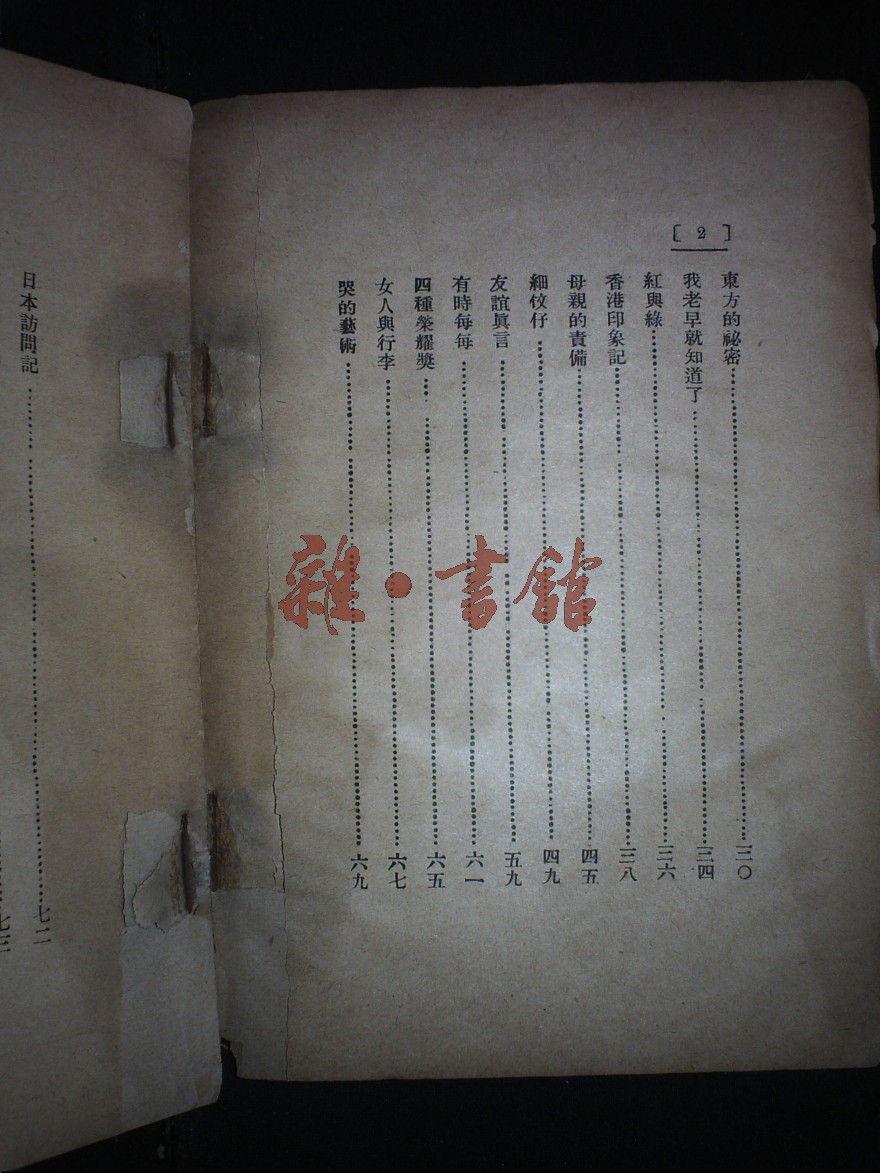 [ 2 ]
東方的祕密 三〇
我老早就知道了 三四
紅與綠 三六
香港印象記 三八
母親的責備 四五
細蚊仔 四九
友誼眞言 五九
有時每每 六一
四種榮耀獎 六五
女人與行李 六七
哭的藝術 六九
日本訪問記 七二
七三
雜·書館